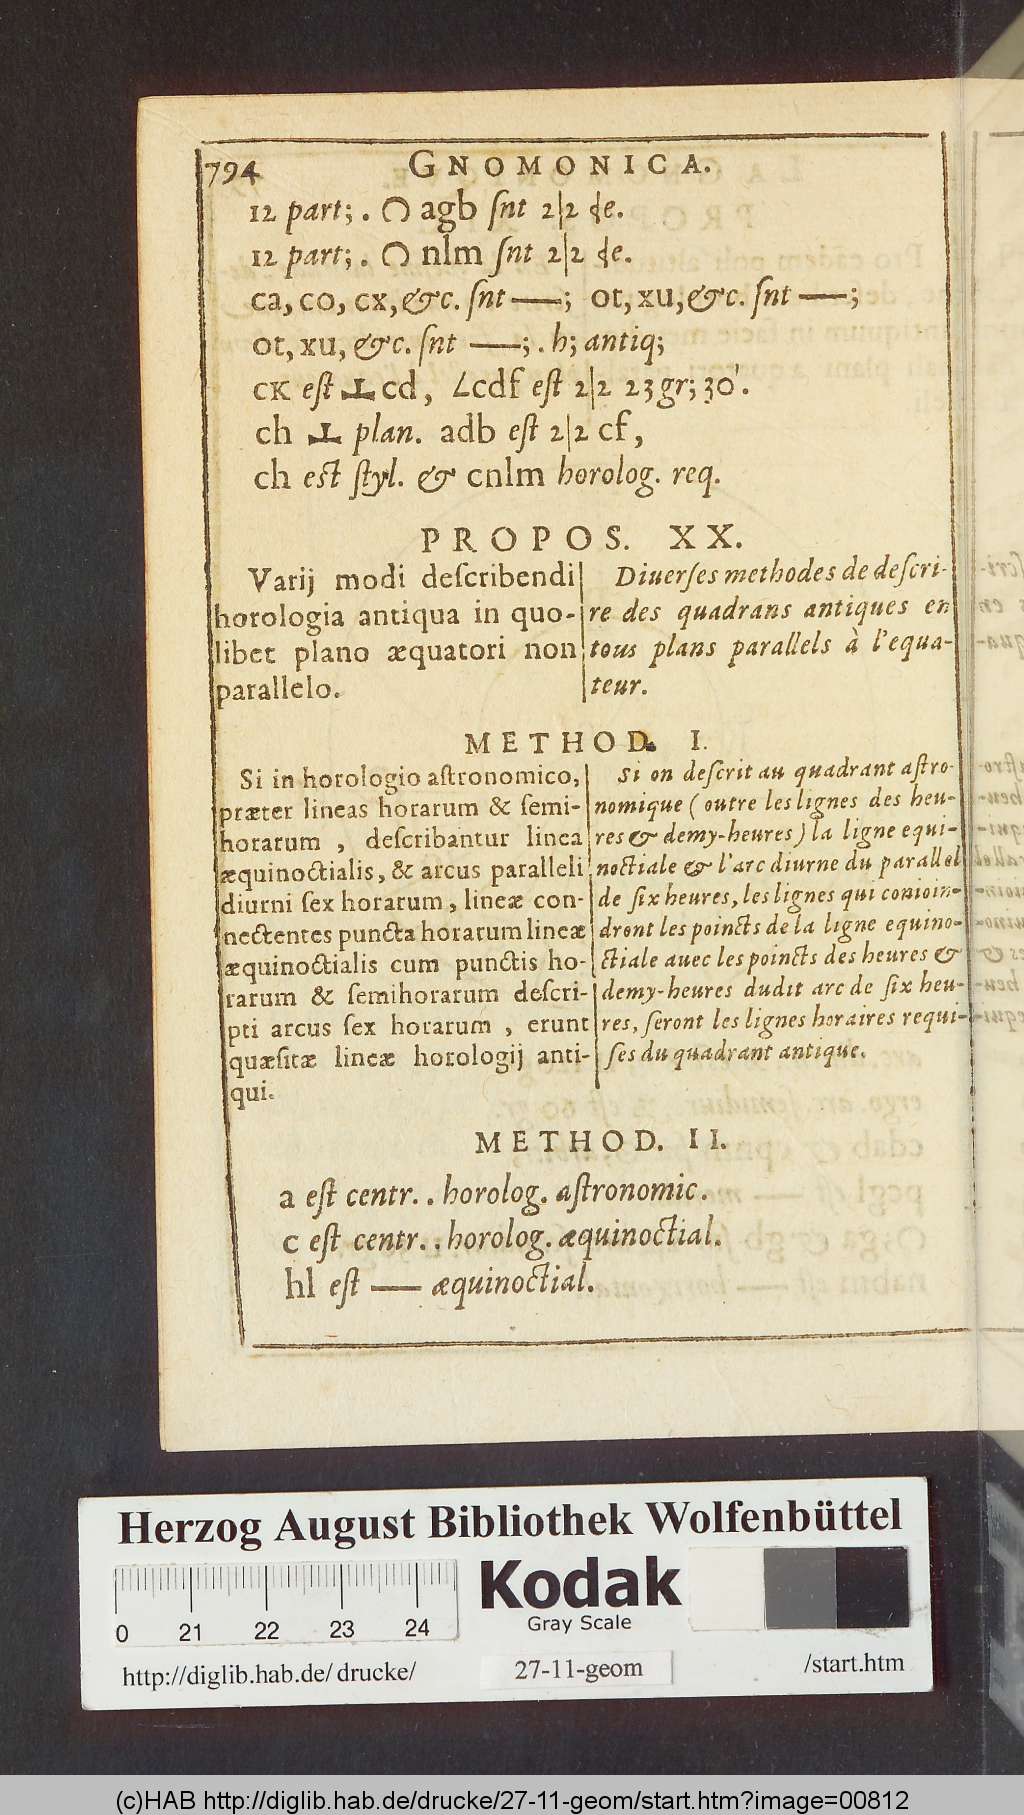 794 GNOMONICA.
12 part; . ◠ agb ſnt 2|2 de.
12 part; . ◠ nlm ſnt 2|2 de.
ca, co, cx, &c. ſnt —; ot, xu, &c. ſnt —;
ot, xu, &c. ſnt —; . h; antiq;
cK eſt ⊥ cd, ∠cdf eſt 2|2 23 gr; 30'.
ch ⊥ plan. adb eſt 2|2 cf,
ch est ſtyl. & cnlm horolog. req.
PROPOS. XX.
Varij modi deſcribendi
horologia antiqua in quo-
libet plano æquatori non
parallelo.
Diuerſes methodes de deſcri-
re des quadrans antiques en
tous plans parallels à l'equa-
teur.
METHOD. I.
Si in horologio aſtronomico,
præter lineas horarum & ſemi-
horarum , deſcribantur linea
æquinoctialis, & arcus paralleli
diurni ſex horarum, lineæ con-
nectentes puncta horarum lineæ
æquinoctialis cum punctis ho-
rarum & ſemihorarum deſcri-
pti arcus ſex horarum , erunt
quæſitæ lineæ horologij anti-
qui.
Si on deſcrit au quadrant aſtro-
nomique (outre les lignes des heu-
res & demy-heures) la ligne equi-
noctiale & l'arc diurne du parallel
de ſix heures, les lignes qui conioin-
dront les poincts de la ligne equino-
ctiale auec les poincts des heures &
demy-heures dudit arc de ſix heu-
res, ſeront les lignes horaires requi-
ſes du quadrant antique.
METHOD. II.
a eſt centr. . horolog. aſtronomic.
c eſt centr. . horolog. æquinoctial.
hl eſt — æquinoctial.
Herzog August Bibliothek Wolfenbüttel
0 21 22 23 24
Kodak
Gray Scale
http://diglib.hab.de/drucke/ 27-11-geom /start.htm
(c)HAB http://diglib.hab.de/drucke/27-11-geom/start.htm?image=00812